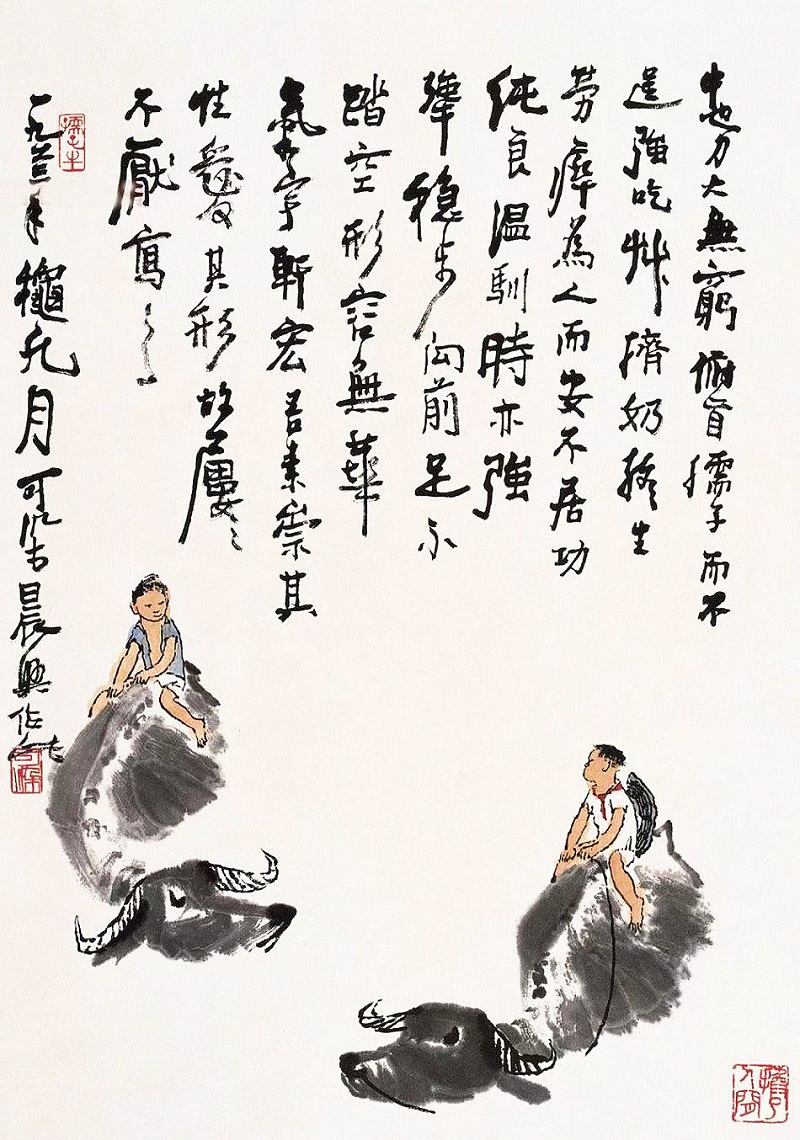 牛也力大無窮俯首孺子而不
逞強吃艸擠奶終生
勞瘁為人而安不居功
純良溫馴時亦強
犟穩步向前足不
踏空形容無華
氣宇軒宏吾素崇其
性愛其形故屢〻
不厭寫之
一九六二年龝九月可染晨興作此
孺子牛
可染
換了人間